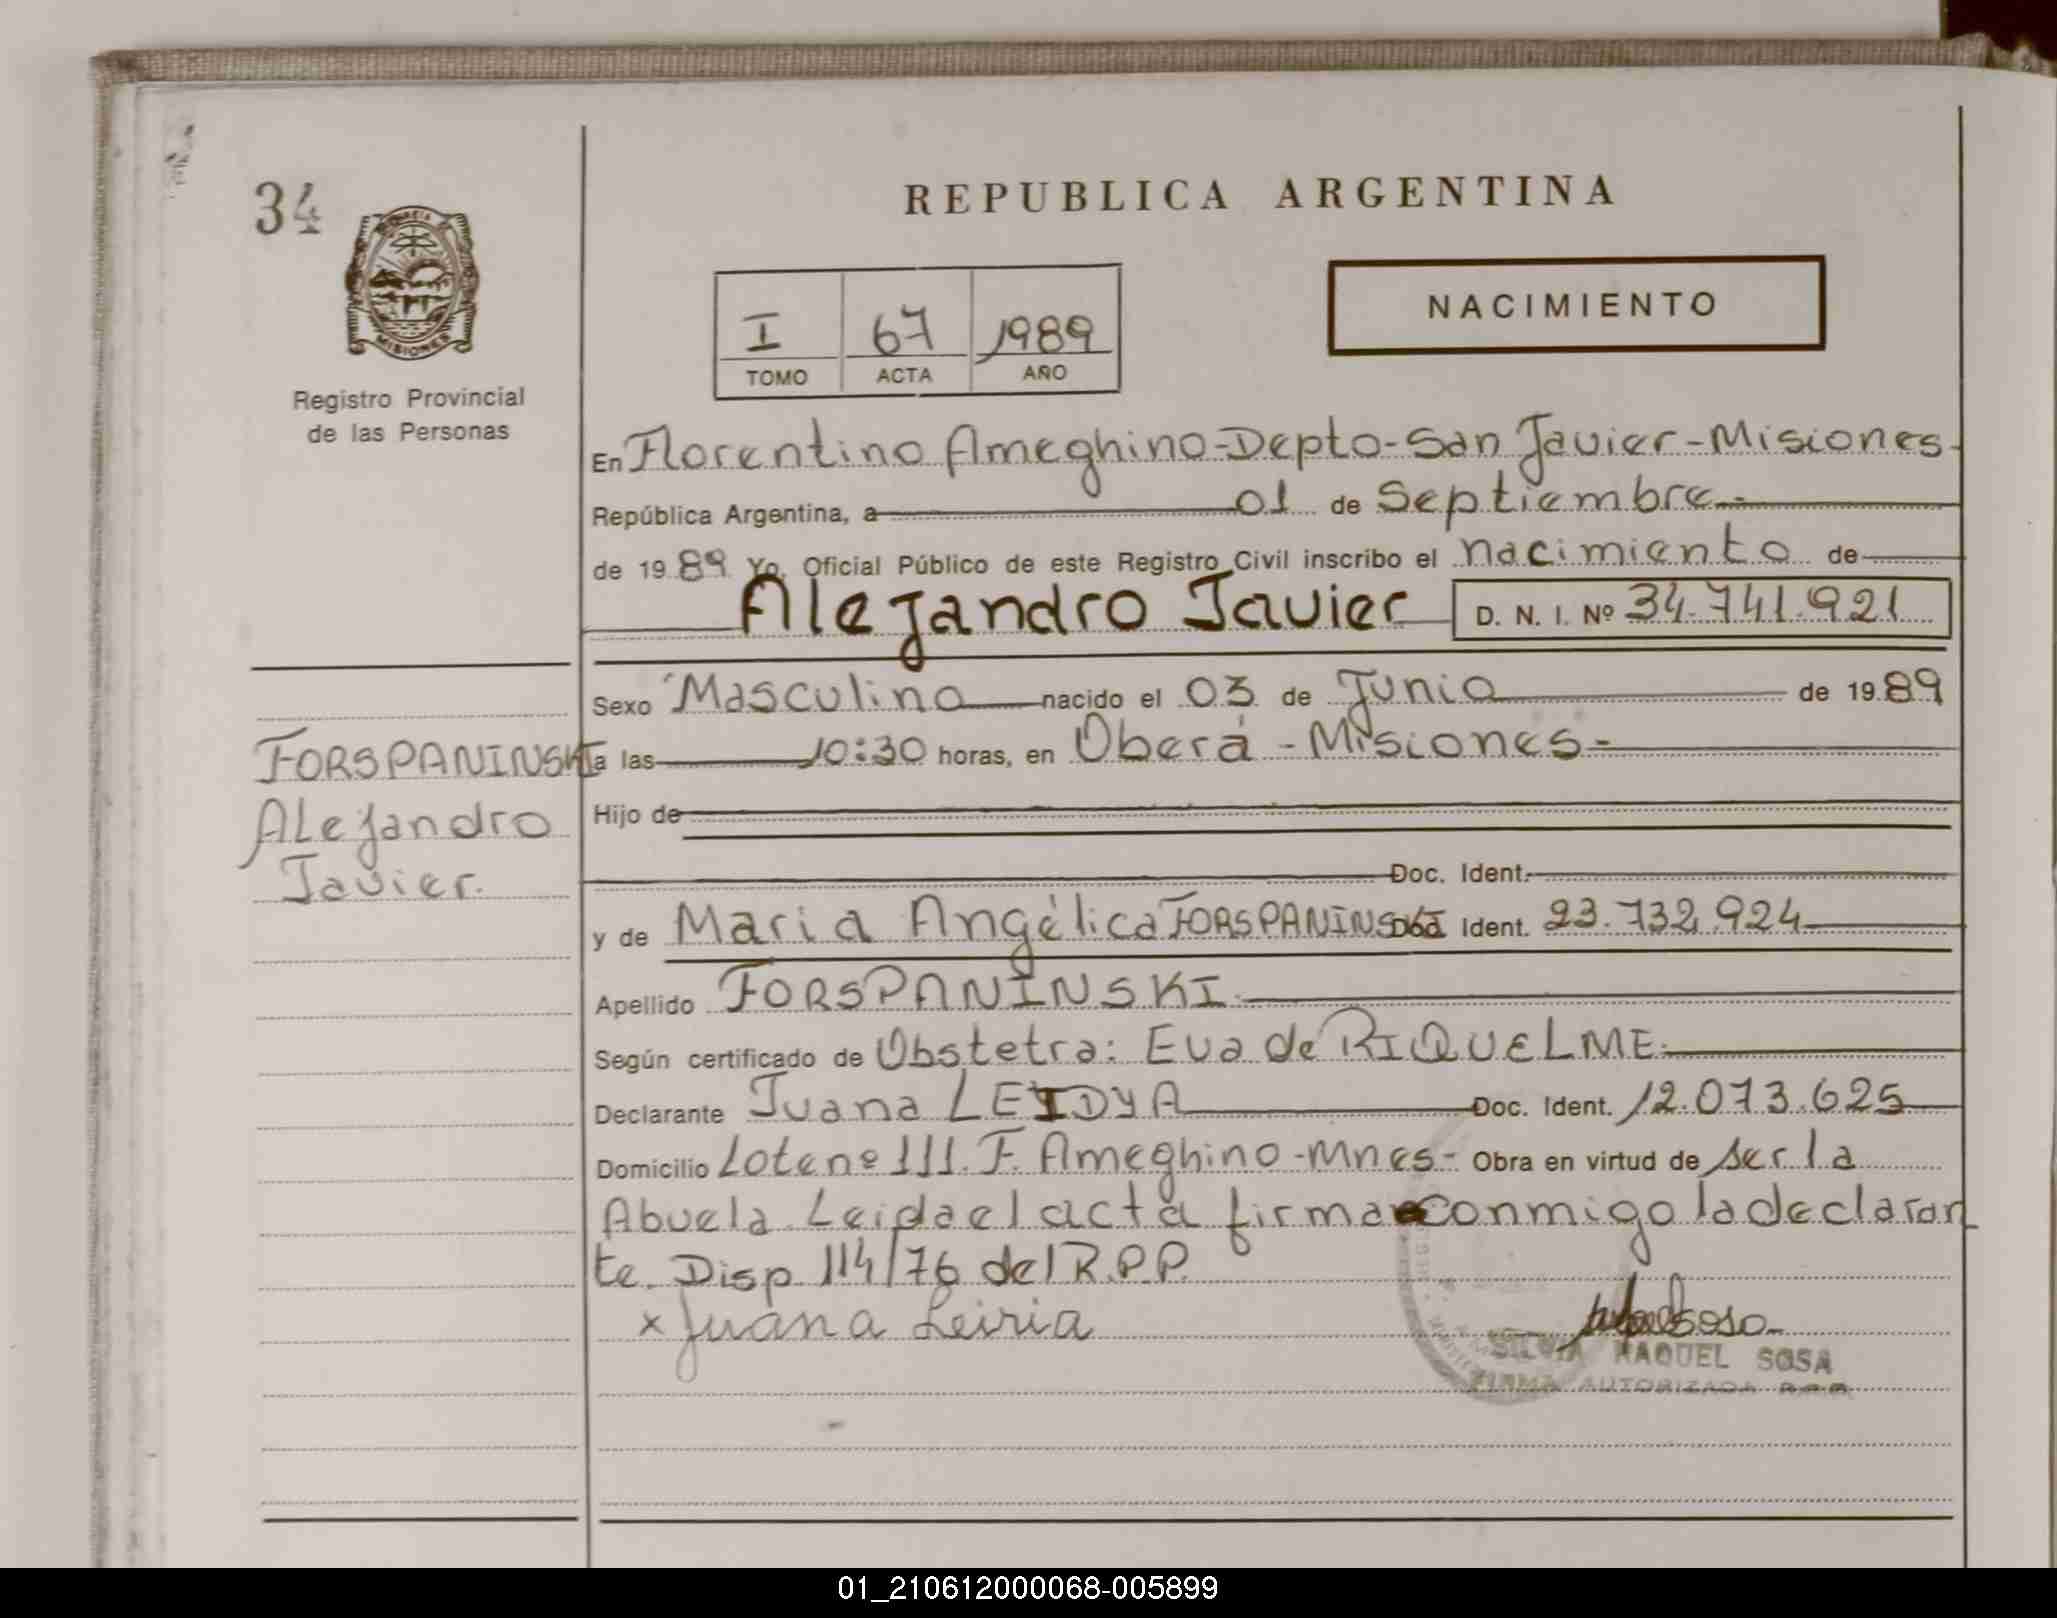 34
REPUBLICA ARGENTINA
NACIMIENTO
I 67 1989
TOMO ACTA AÑO
MISIONES
Registro Provincial
de las Personas
En Florentino Ameghino-Depto-San Javier-Misiones-
República Argentina, a 01 de Septiembre.-
de 1989 Yo, Oficial Público de este Registro Civil inscribo el nacimiento de
Alejandro Javier D. N. I. Nº 34.741.921
Sexo Masculino nacido el 03 de Junio de 1989
FORSPANINSKI
Alejandro
Javier.
a las 10:30 horas, en Oberá - Misiones-
Hijo de
Doc. Ident.
y de Maria Angélica FORSPANINSKI Doc. Ident. 23.732.924
Apellido FORSPANINSKI.
Según certificado de Obstetra: Eva de RIQUELME.
Declarante Juana LEIDYA Doc. Ident. 12.073.625
Domicilio Lote nº 111. F. Ameghino-Mnes- Obra en virtud de ser la
Abuela. Leida el acta firma conmigo la declaran
te. Disp. 114/76 del R.P.P.
x Juana Leiria
SILVIA RAQUEL SOSA
FIRMA AUTORIZADA R.P.P.
01_210612000068-005899